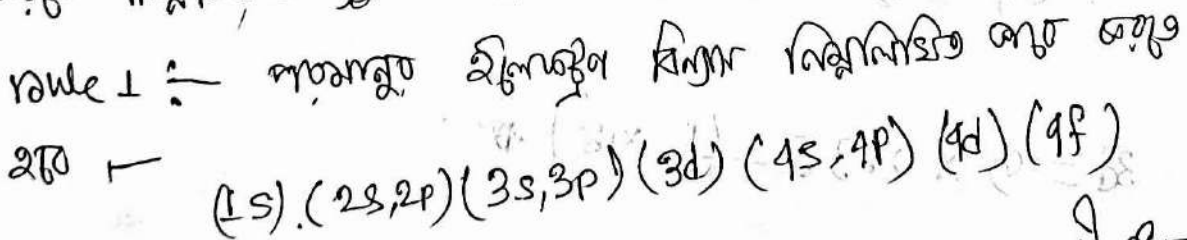 rule 1 :- পরমানুর ইলেকট্রন বিন্যাস নিম্নলিখিত ভাবে করতে
হবে —
(1s).(2s,2p)(3s,3p)(3d)(4s,4p)(4d)(4f)